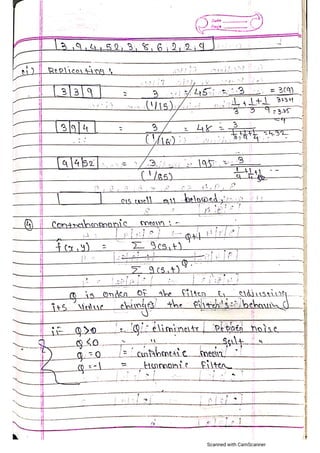 Date
Page
3, 9, 4, 52, 3, 8, 6, 2, 2, 9
ii) Replicating :
3 3 9 = 3 = 45 = 3 = 3(9)
(1/15) 1/3 + 1/3 + 1/9
3 9 4 = 3 = 48 = 3
(1/16) 1/3 + 1/9 + 1/4 = 4.32
9 4 52 = 3 = 195 = 3
(1/65)
as well all
④ Contraharmonic mean :-
f̂(x,y) = Σ g(s,t)^Q+1
Σ g(s,t)^Q
Q is order of the filter & adjusting
its value changes the filter's behaviour
if Q>0 = Q eliminate pepper noise
Q<0 = " salt "
Q=0 = arithmetic mean
Q=-1 = Harmonic Filter
Scanned with CamScanner